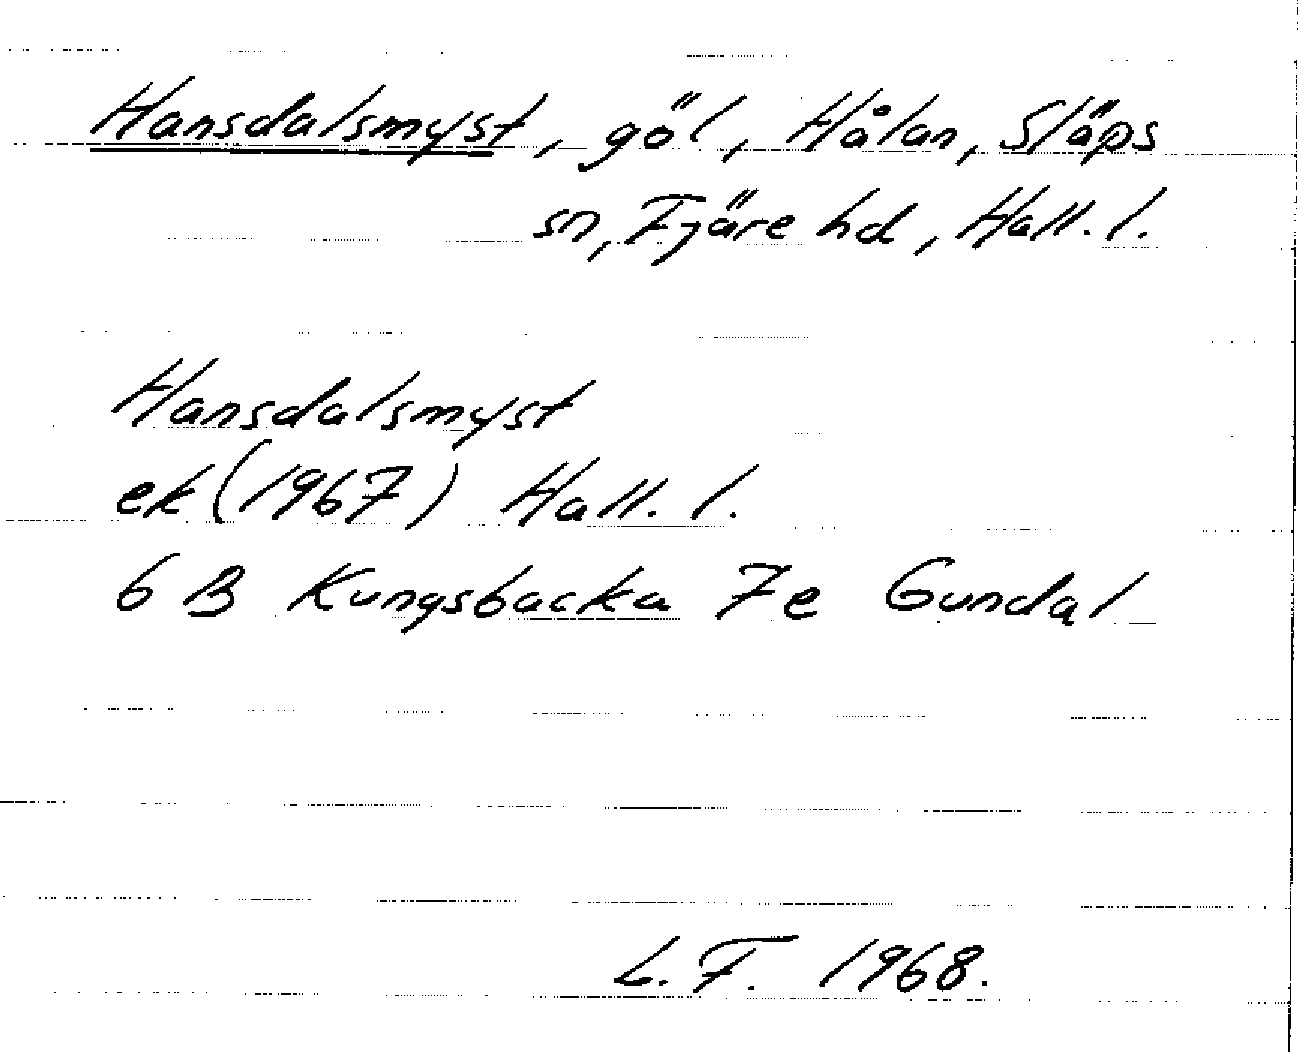 Hansdalsmyst, göl, Hålan, Släps
sn, Fjäre hd, Hall. l.
Hansdalsmyst
ek (1967) Hall. l.
6 B Kungsbacka 7e Gundal
L. F. 1968.